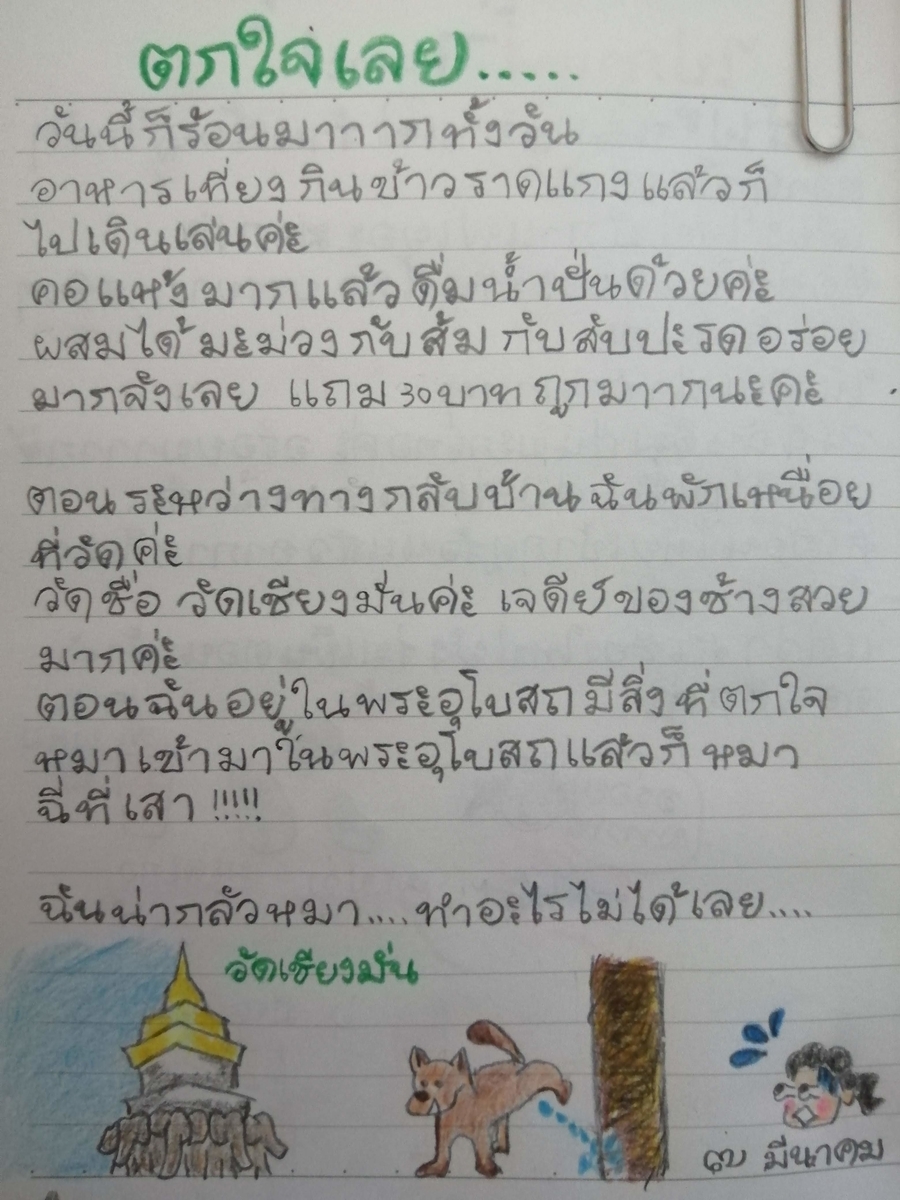 ตกใจเลย......
วันนี้ก็ร้อนมาาากทั้งวัน
อาหารเที่ยงกินข้าวราดแกงแล้วก็
ไปเดินเล่นค่ะ
คอแห้งมากแล้วดื่มน้ำปั่นด้วยค่ะ
ผสมได้มะม่วงกับส้มกับสับปะรดอร่อย
มากจังเลย แถม 30 บาทถูกมาากนะคะ
ตอนระหว่างทางกลับบ้านฉันพักเหนื่อย
ที่วัดค่ะ
วัดชื่อ วัดเชียงมั่นค่ะ เจดีย์ของช้างสวย
มากค่ะ
ตอนฉันอยู่ในพระอุโบสถมีสิ่งที่ตกใจ
หมาเข้ามาในพระอุโบสถแล้วก็หมา
ฉี่ที่เสา !!!!!
ฉันน่ากลัวหมา....ทำอะไรไม่ได้เลย....
วัดเชียงมั่น
มีนาคม